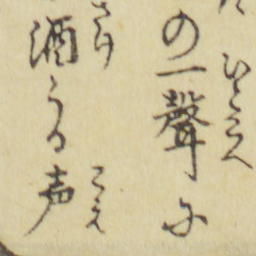 の一聲に
ひとこゑ
酒うる声
さけ
こゑ